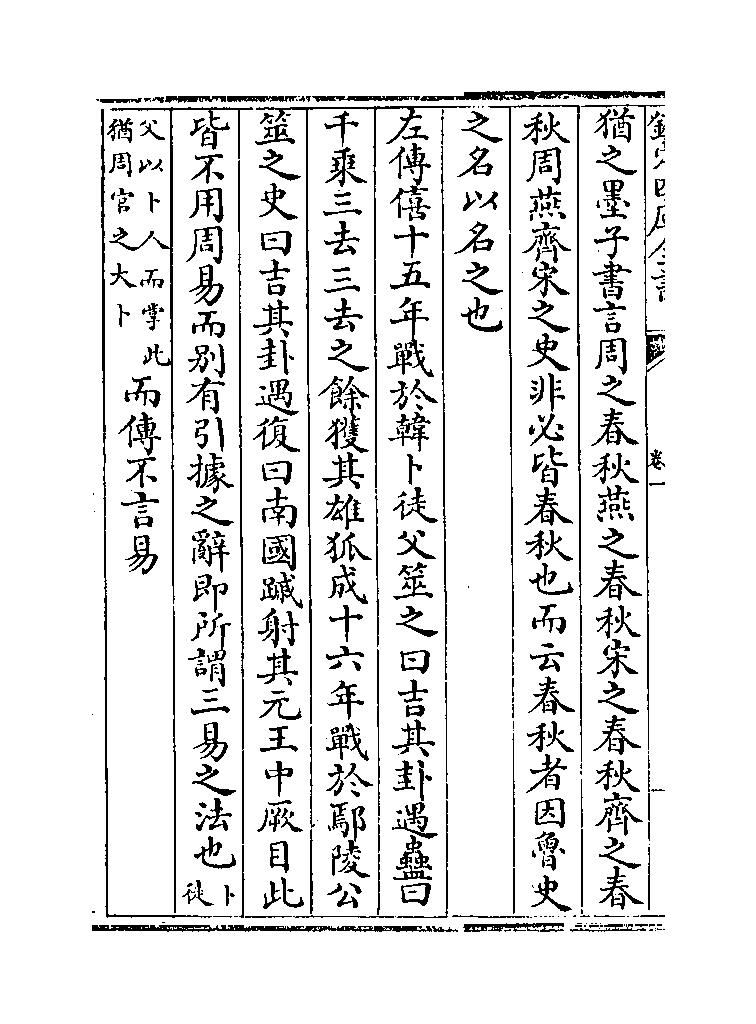 欽定四庫全書
卷一
猶之墨子書言周之春秋燕之春秋宋之春秋齊之春
秋周燕齊宋之史非必皆春秋也而云春秋者因魯史
之名以名之也
左傳僖十五年戰於韓卜徒父筮之曰吉其卦遇蠱曰
千乘三去三去之餘獲其雄狐成十六年戰於鄢陵公
筮之史曰吉其卦遇復曰南國䠞射其元王中厥目此
皆不用周易而别有引據之辭即所謂三易之法也卜徒
父以卜人而掌此
猶周官之大卜
而傳不言易